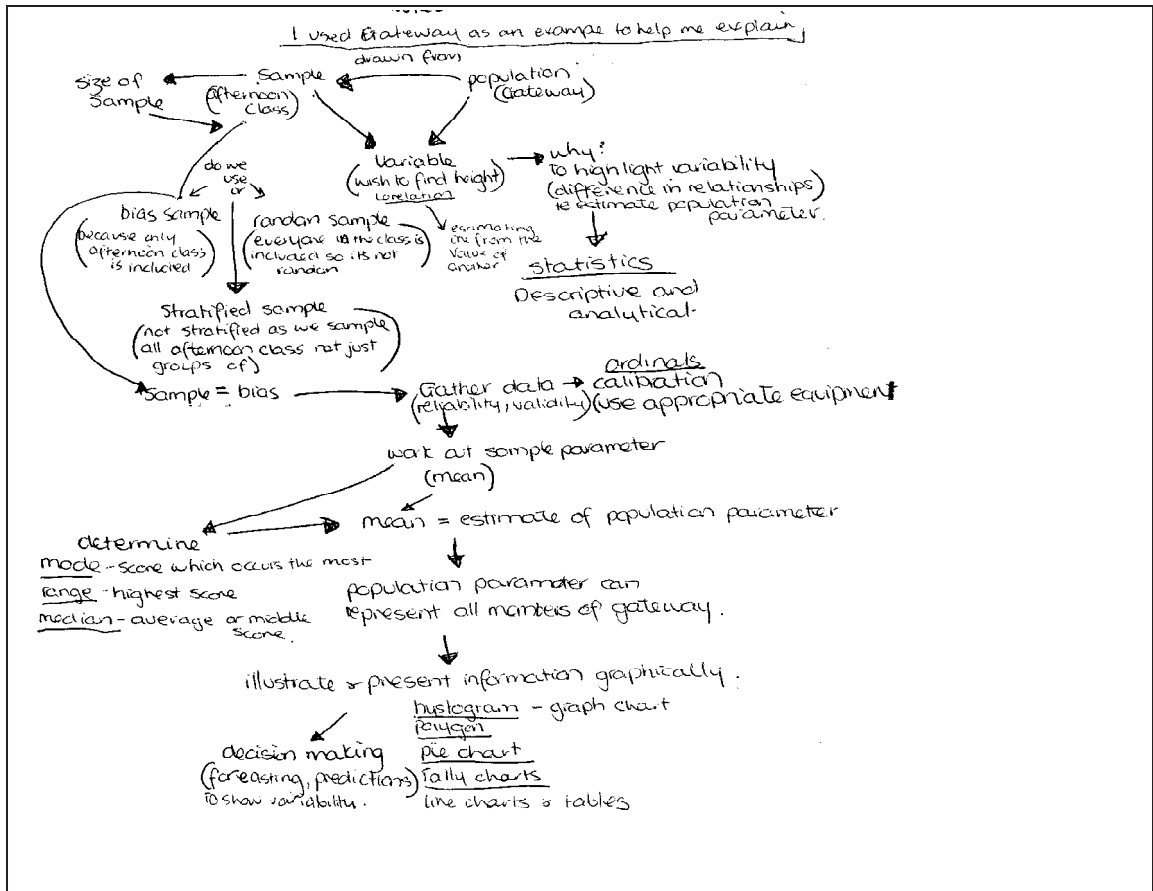 I used Gateway as an example to help me explain
drawn from
size of
sample
sample
(afternoon
class)
population
(Gateway)
variable
(wish to find height)
corelation
why?
to highlight variability
(difference in relationships)
to estimate population
parameter.
do we
use
or
bias sample
(because only
afternoon class
is included)
random sample
(everyone in the class is
included so its not
random
estimating
one from the
value of
another
statistics
Descriptive and
analytical.
Stratified sample
(not stratified as we sample
all afternoon class not just
groups of)
Sample = bias
Gather data
(reliability, validity)
ordinals
calibration
(use appropriate equipment
work out sample parameter
(mean)
mean = estimate of population parameter
determine
mode - score which occurs the most
range - highest score
median - average or middle
score.
population parameter can
represent all members of gateway.
illustrate & present information graphically.
hystogram - graph chart
polygen
pie chart
tally charts
line charts & tables
decision making
(foreasting, predictions)
to show variability.